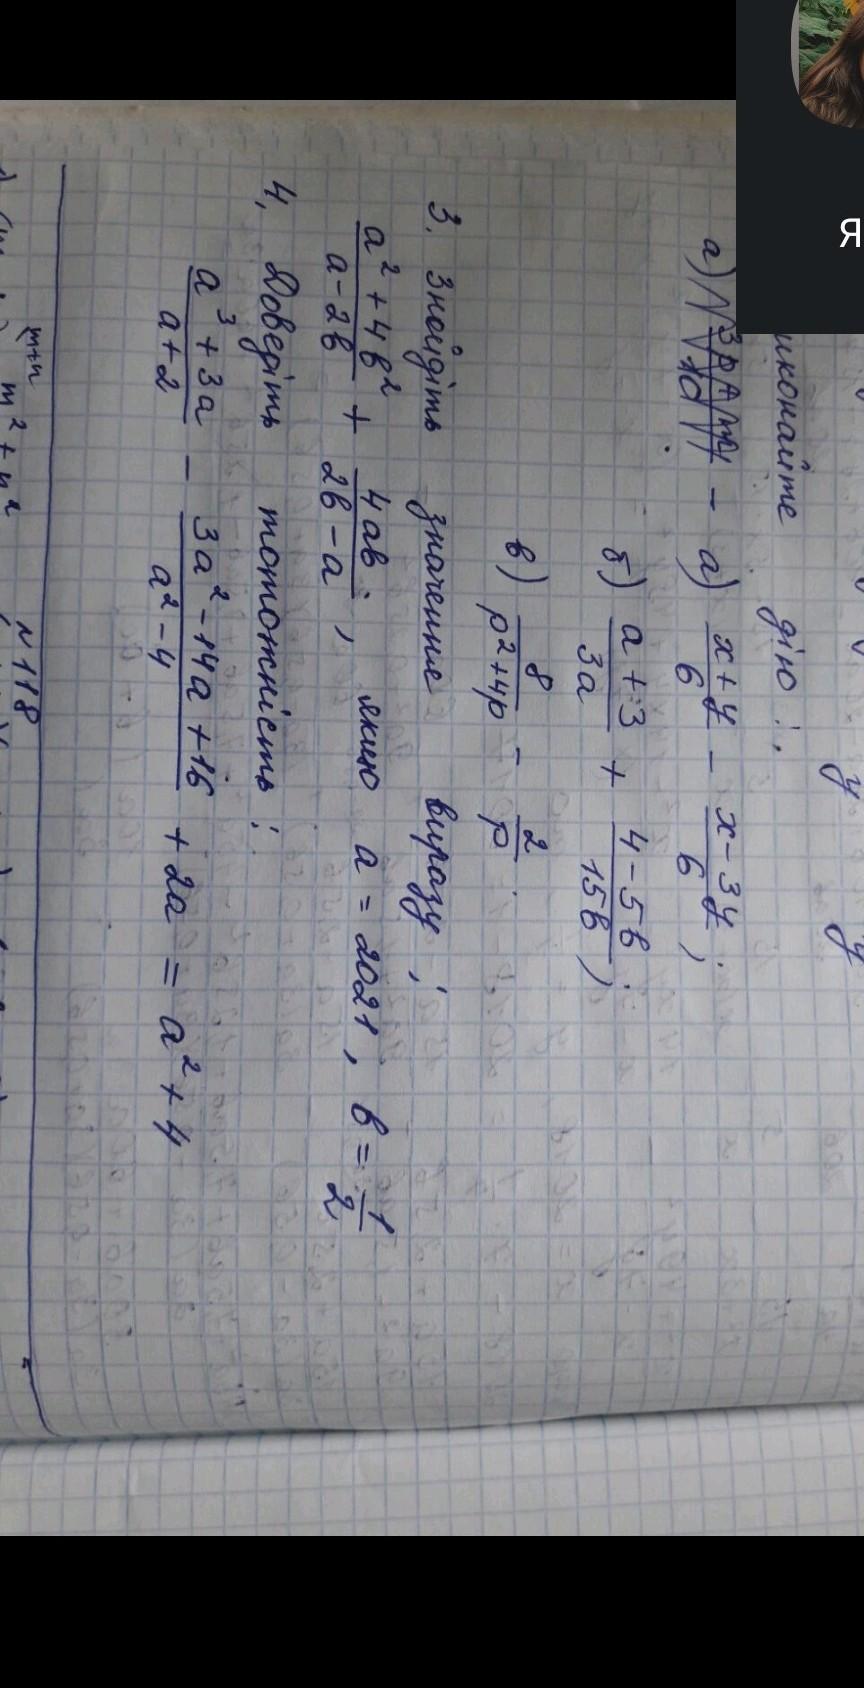 Я
дію :
а) (x+y)/6 - (x-3y)/6 ;
б) (a+3)/3a + (4-5b)/15b ;
в) 8/(p²+4p) - 2/p
3. Знайдіть значення виразу :
(a²+4b²)/(a-2b) + 4ab/(2b-a) , якщо a = 2021, b = 1/2
4. Доведіть тотожність :
(a³+3a)/(a+2) - (3a²-14a+16)/(a²-4) + 2a = a²+4
№118
m+n
m²+n²